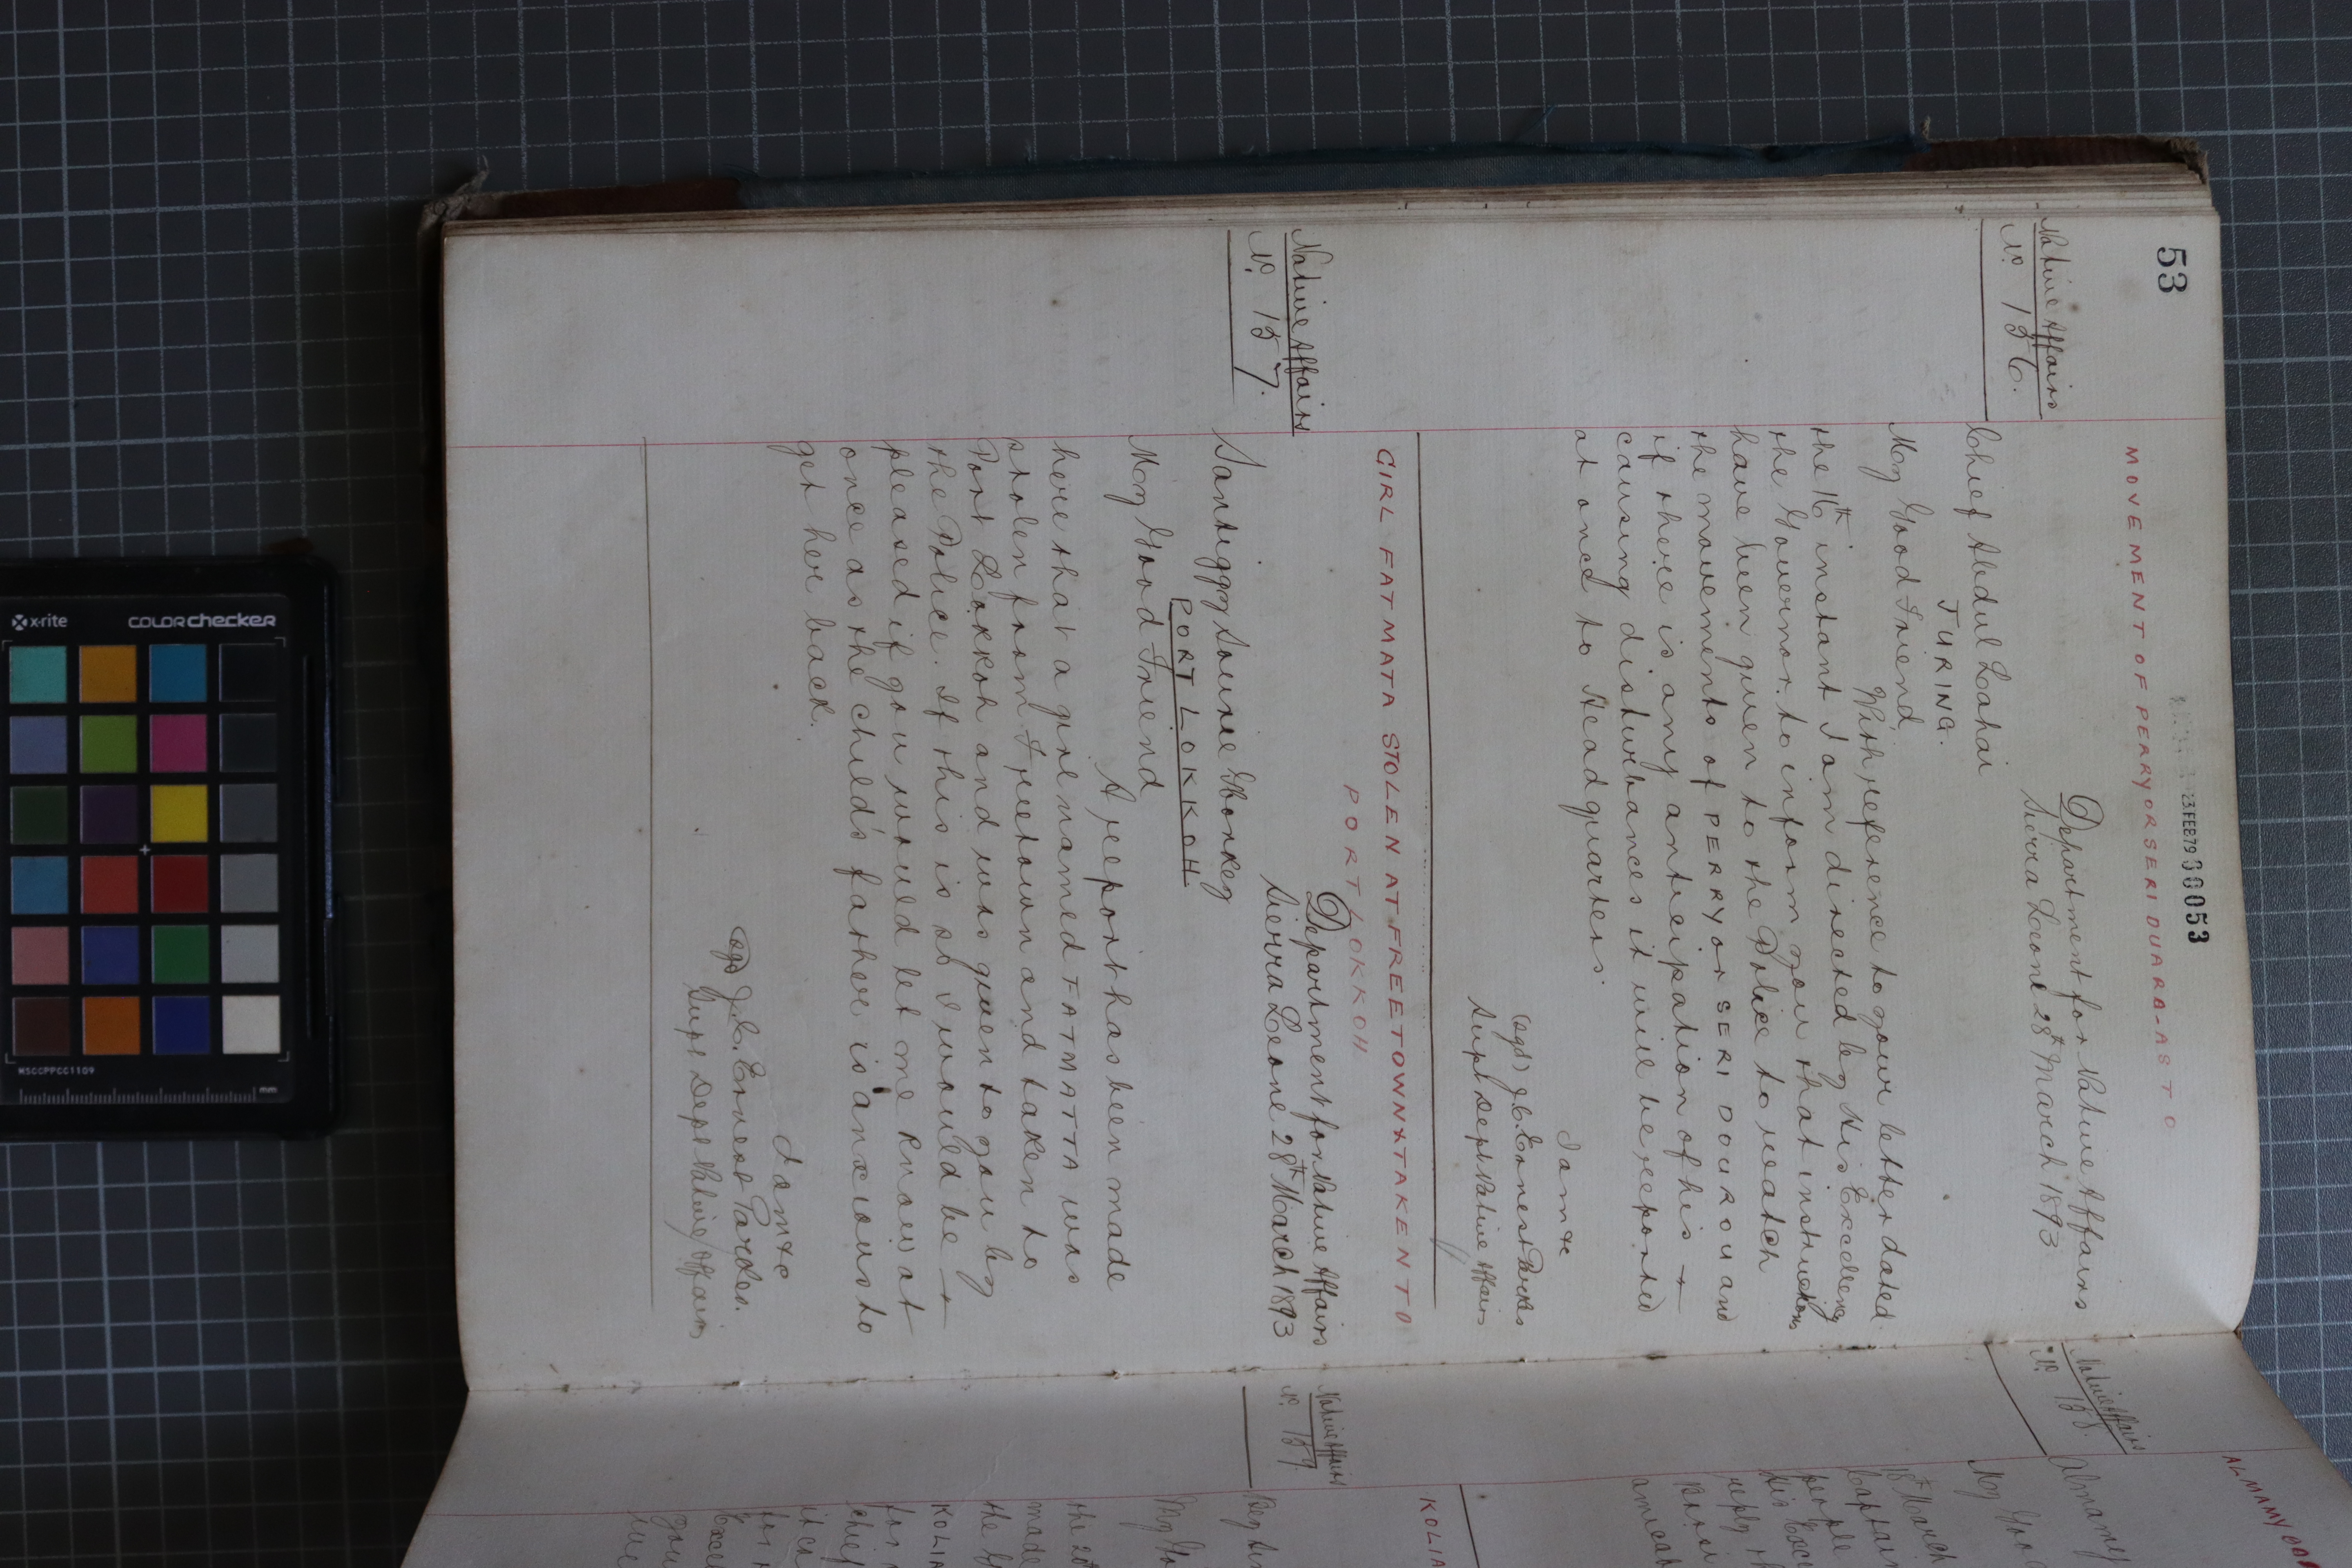 53
23 FEB 79 00053
MOVEMENT OF PERRY OR SERI DUARA - AS TO
Native Affairs
No. 156.
Department for Native Affairs
Sierra Leone 28th March 1893
Chief Abdul Lahai
TURING.
My Good Friend
With reference to your letter dated
the 16th instant I am directed by His Excellency
the Governor to inform you that instructions
have been given to the Police to watch
the movements of PERRY or SERI DOUROU and
if there is any anticipation of his
causing disturbances it will be reported
at once to Headquarters.
I am &c
(sgd) J.C. Ernest Parkes
Supt Dept Native Affairs
GIRL FATMATA STOLEN AT FREETOWN & TAKEN TO
PORT LOKKOH
Native Affairs
No. 157.
Department for Native Affairs
Sierra Leone 28th March 1893
Santiggy Sourie Gbonkey
PORT LOKKOH
My Good Friend
A report has been made
here that a girl named FATMATTA was
stolen from Freetown and taken to
Port Lokkoh and was given to you by
the Police. If this is so I would be
pleased if you would let me know at
once as the child's father is anxious to
get her back.
I am &c
(sgd) J.C. Ernest Parkes.
Supt Dept Native Affairs
ALMAMY
Native Affairs
No. 158.
Almamy
My Good
18th March
Captain
people
His Exce
reply th
amicab
KOLIA
Native Affairs
No. 159.
My Go
the 20th
made
the G
KOLIA
for
chief
it ca
for
Exce
you